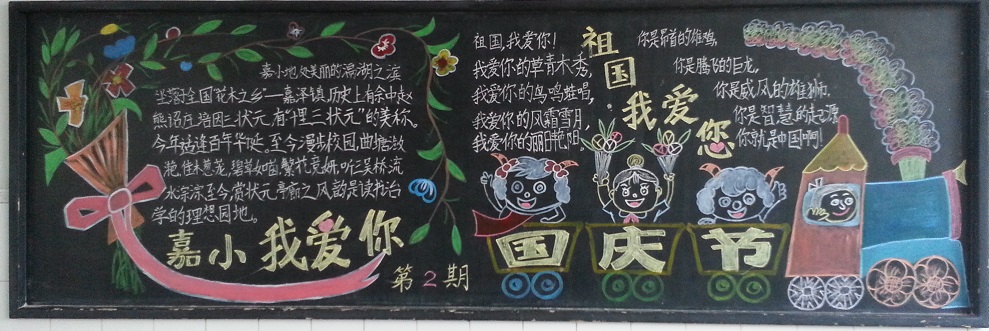 嘉小地处美丽的滆湖之滨
坐落全国花木之乡——嘉泽镇,历史上有余中赵
熊诏在培因三状元,有“一里三状元”的美称。
今年 百年华诞,至今漫步校园,曲塘
佳木葱龙,碧草如茵,繁花竞妍,听三吴桥流
水淙淙至今,赏状元亭 之风韵是读书治
学的理想园地。
嘉小我爱你
第2期
祖国,我爱你!
我爱你的草青木秀,
我爱你的鸟鸣蛙唱,
我爱你的风霜雪月,
我爱你的丽日艳阳
祖国我爱您
你是昂首的雄鸡,
你是腾飞的巨龙,
你是威风的雄狮.
你是智慧的起源,
你就是中国啊!
国庆节